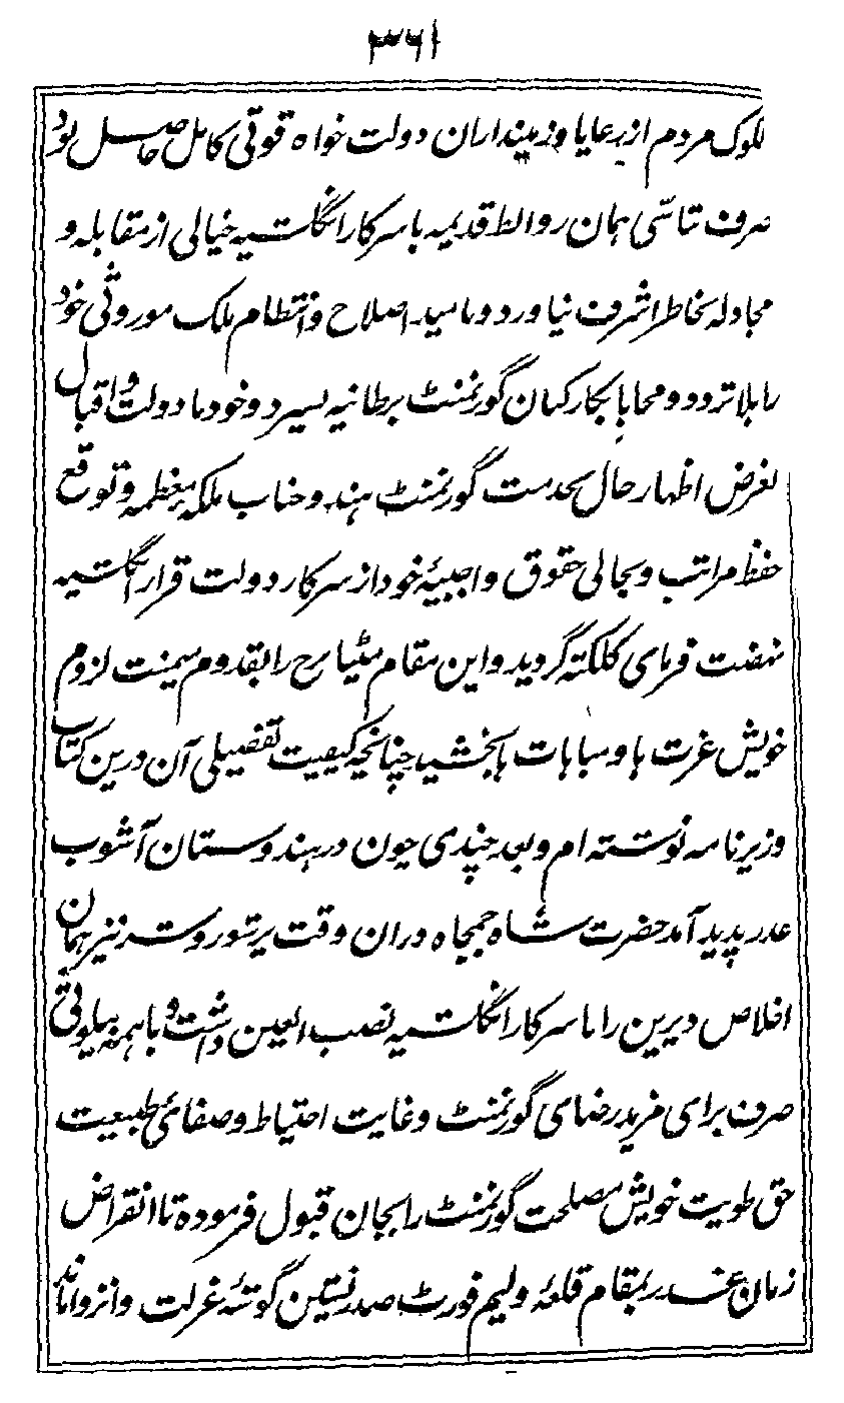 ۳۶۱
لکوک مردم از رعایا و زمینداران دولت خواه قوتی کامل حاصل بود
صرف تاسّی همان روابط قدیمه با سرکار انگلشیه خیالی از مقابله و
مجادله بخاطر اشرف نیاورد و مامید اصلاح و انتظام ملک موروثی خود
را بلا تردد و محابا بکارکنان گورنمنٹ برطانیه سپرد و خود با دولت و اقبال
بغرض اظهار حال بخدمت گورنمنٹ هند و جناب ملکه معظمه و توقع
حفظ مراتب و بحالی حقوق واجبیهٔ خود از سرکار دولت قرار انگلشیه
نهضت فرمای کلکته گردید و این مقام مٹیابرج را بقدوم میمنت لزوم
خویش عزت ها و مباهات ها بخشید چنانچه کیفیت تفصیلی آن درین کتاب
وزیرنامه نوشته ام و بعد چندی چون در هندوستان آشوب
غدر پدید آمد حضرت شاه جمجاه دران وقت پرشور و شر نیز همان
اخلاص دیرین را با سرکار انگلشیه نصب العین داشت و با همه بیلوثی
صرف برای مزید رضای گورنمنٹ و غایت احتیاط و صفائی طبیعت
حق طویت خویش مصلحت گورنمنٹ را بجان قبول فرموده تا انقراض
زمان غدر بمقام قلعهٔ ولیم فورٹ صدر نشین گوشهٔ عزلت و انزوا ماند